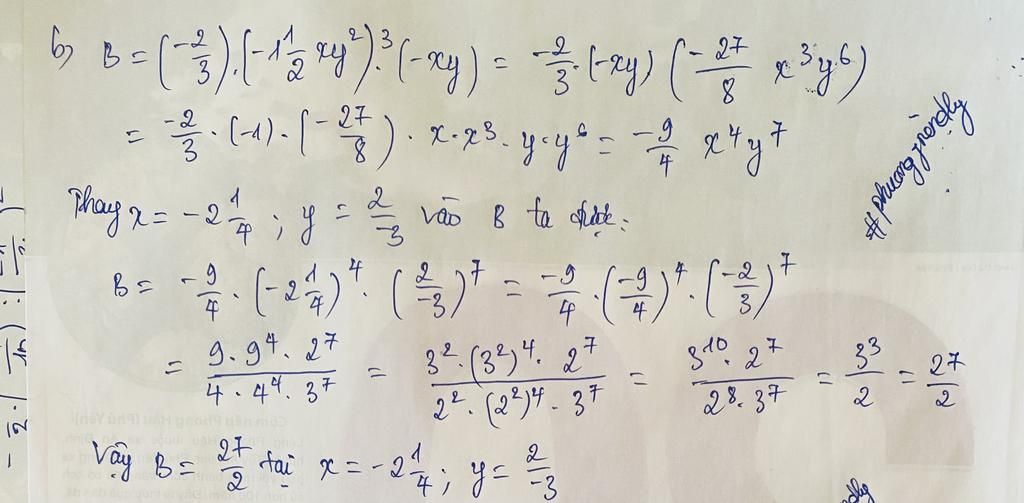 b) B = (-2/3).(-1 1/2 xy²)³.(-xy) = -2/3.(-xy)(-27/8 x³y⁶)
= -2/3 . (-1) . (-27/8) . x.x³.y.y⁶ = -9/4 x⁴y⁷
#phuongfriendly
Thay x = -2 1/4 ; y = 2/-3 vào B ta được:
B = -9/4 . (-2 1/4)⁴ . (2/-3)⁷ = -9/4 . (-9/4)⁴ . (-2/3)⁷
= 9.9⁴.2⁷/4.4⁴.3⁷ = 3².(3²)⁴.2⁷/2².(2²)⁴.3⁷ = 3¹⁰.2⁷/2⁸.3⁷ = 3³/2 = 27/2
Vậy B = 27/2 tại x = -2 1/4 ; y = 2/-3